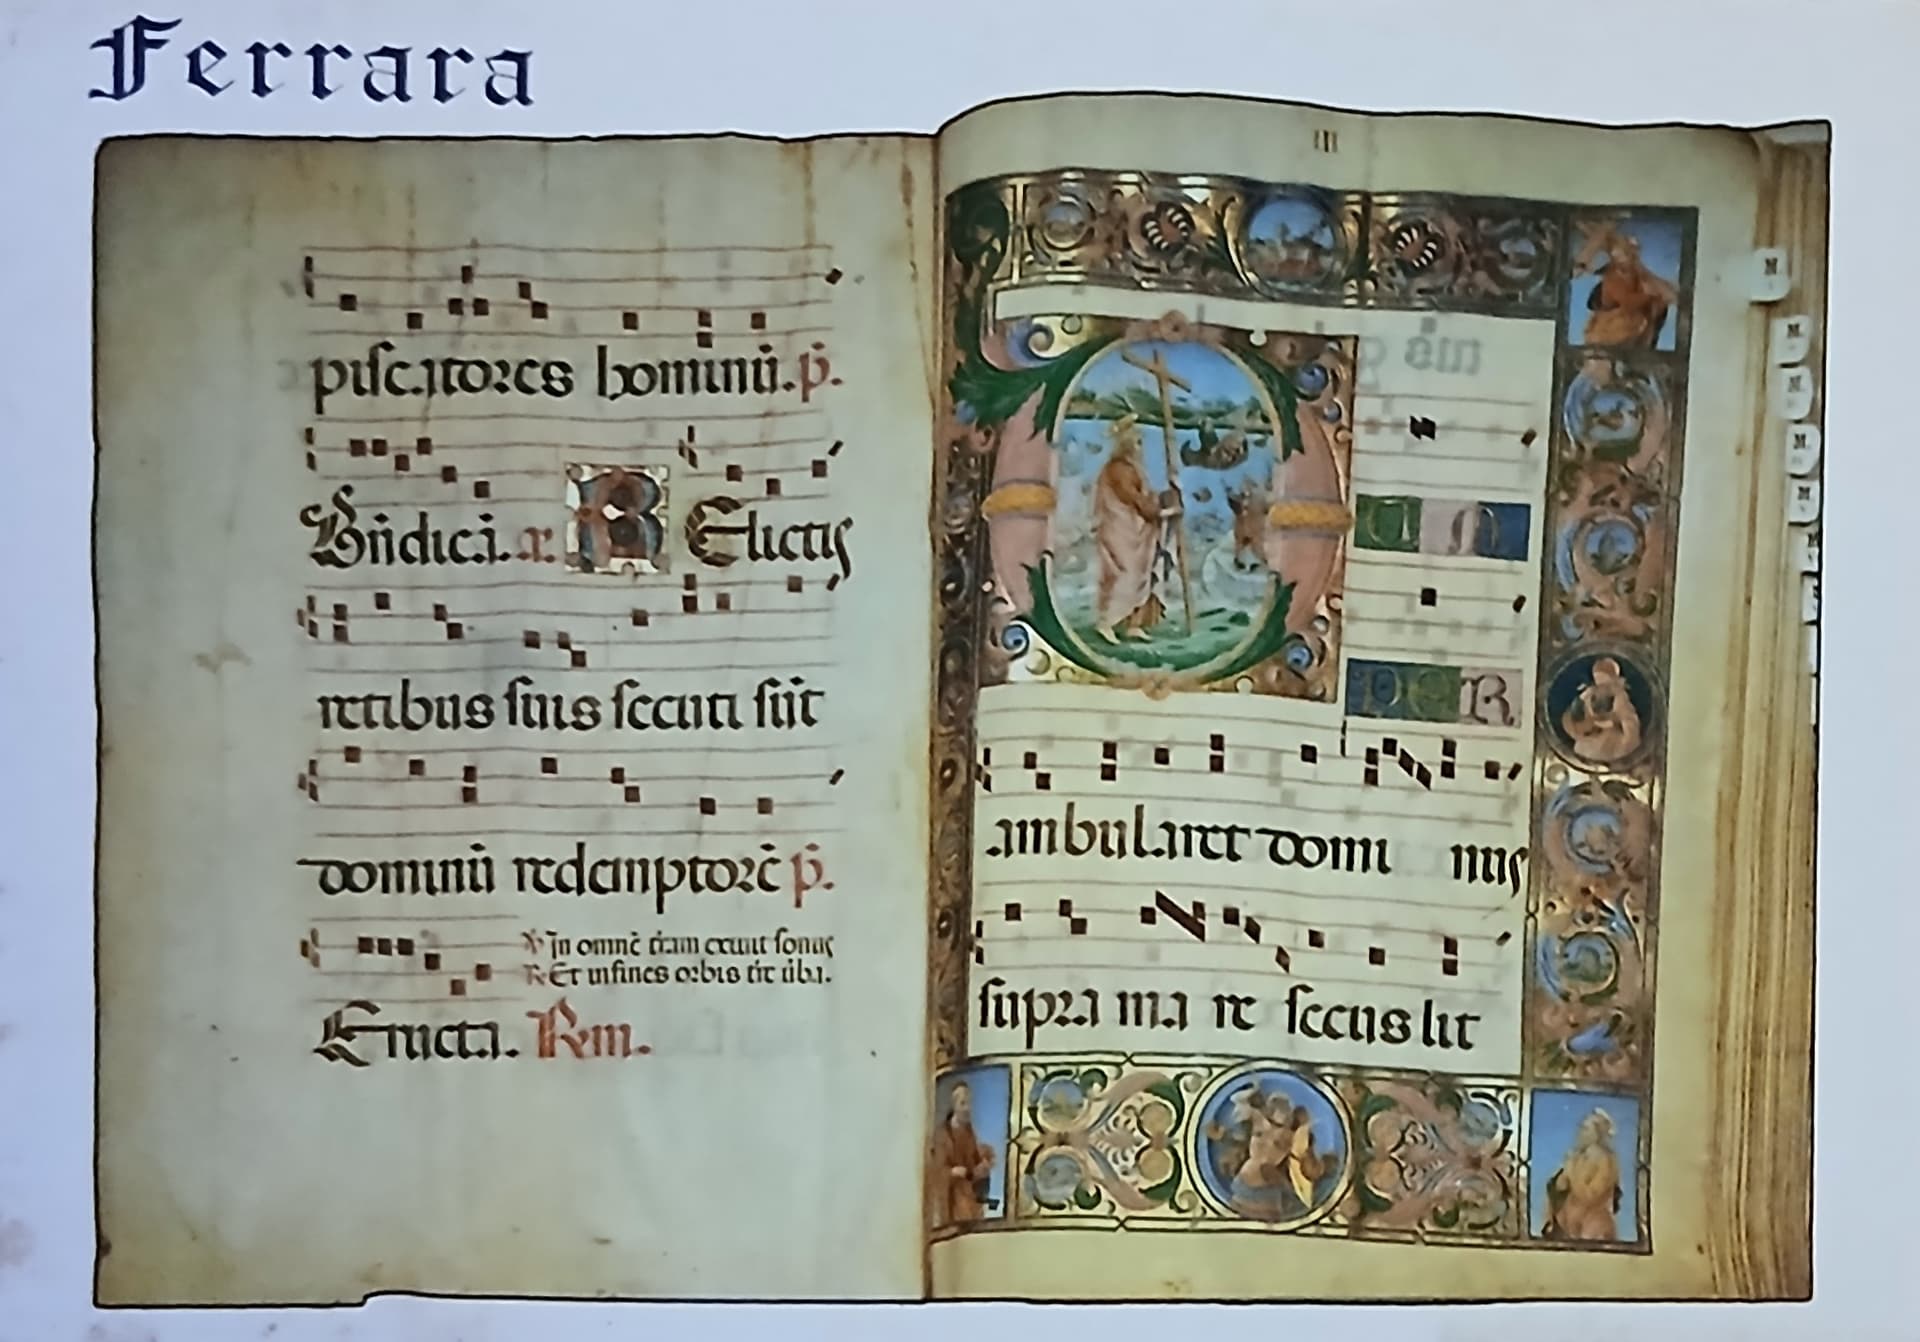 Ferrara
piscatores hominū. p̄.
Bn̄dicā. x. R Elictis
retibus suis secuti sūt
dominū redemptorē p̄.
In omnē tr̄am exiuit sonus
Et in fines orbis tr̄e
Eructa. Rm.
III
D U M
PER
ambularet domi nus
supra ma re secus lit